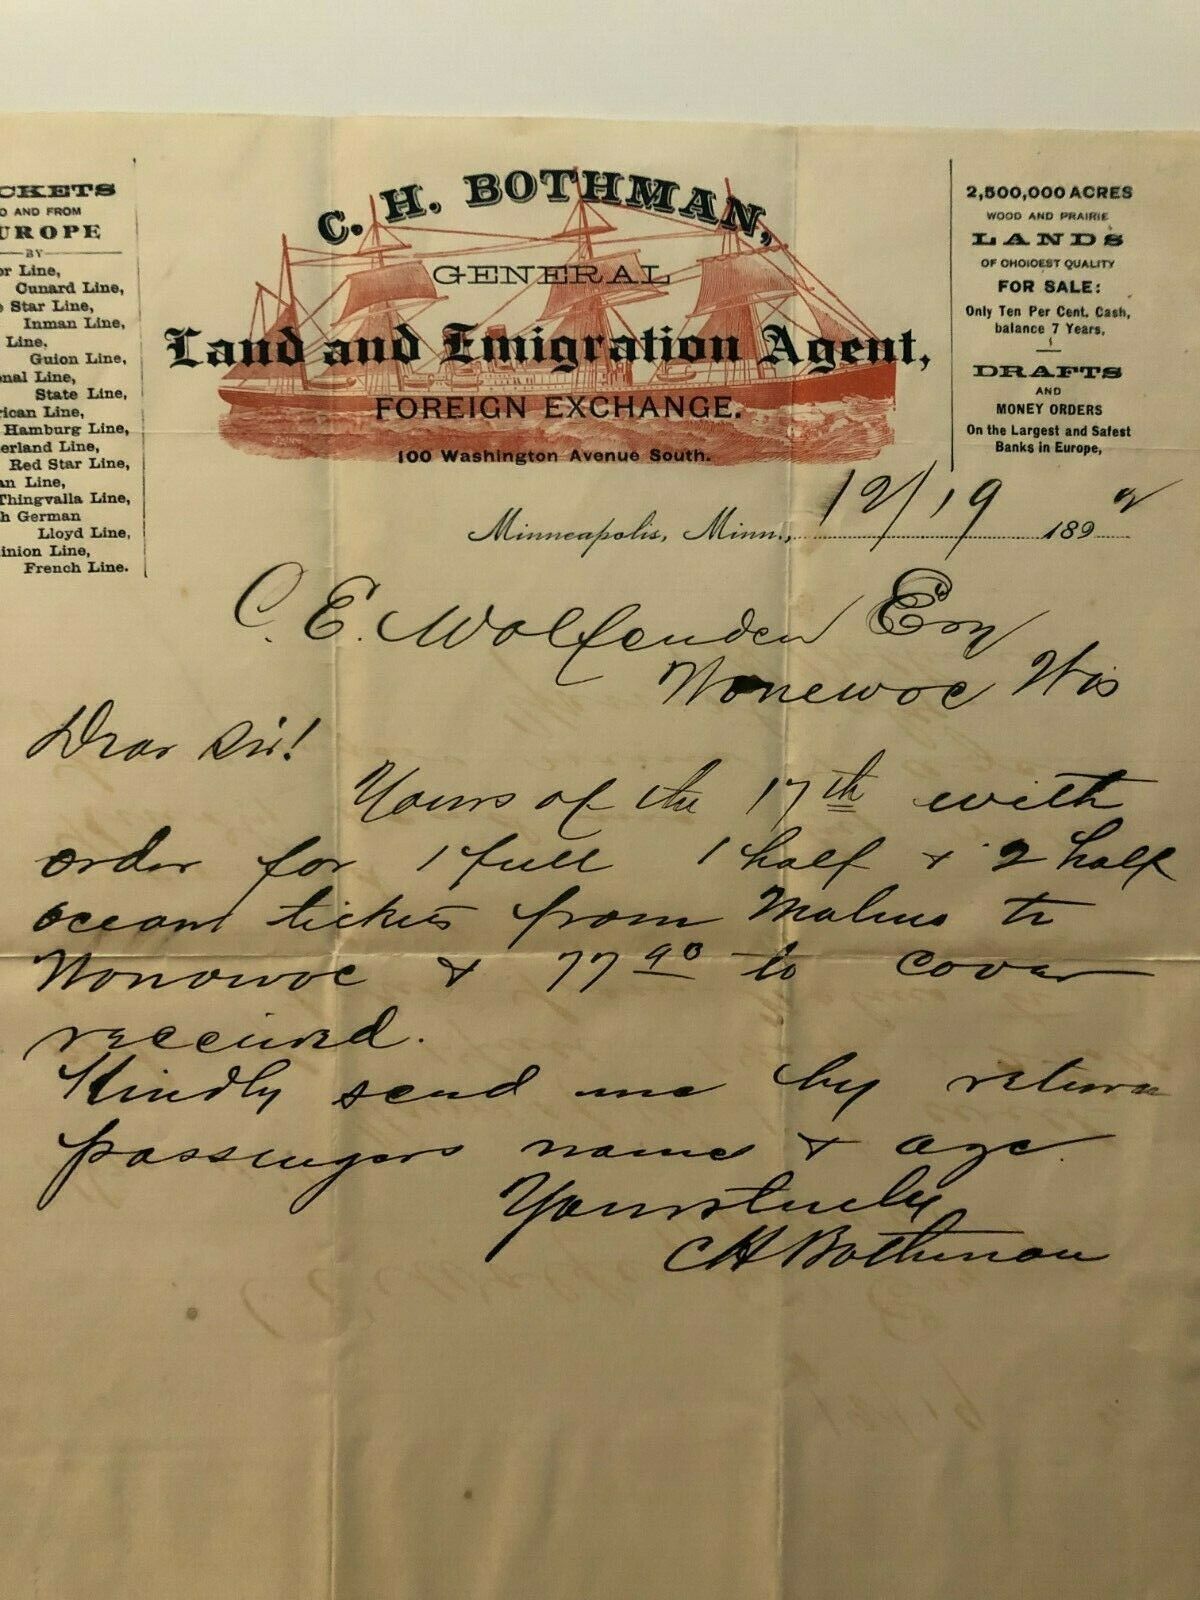 CKETS
O AND FROM
UROPE
BY
or Line,
Cunard Line,
e Star Line,
Inman Line,
Line,
Guion Line,
onal Line,
State Line,
rican Line,
Hamburg Line,
erland Line,
Red Star Line,
an Line,
Thingvalla Line,
h German
Lloyd Line,
inion Line,
French Line.
C. H. BOTHMAN,
GENERAL
Land and Emigration Agent,
FOREIGN EXCHANGE.
100 Washington Avenue South.
2,500,000 ACRES
WOOD AND PRAIRIE
LANDS
OF CHOICEST QUALITY
FOR SALE:
Only Ten Per Cent. Cash,
balance 7 Years,
DRAFTS
AND
MONEY ORDERS
On the Largest and Safest
Banks in Europe,
Minneapolis, Minn., 12/19 1892
C. E. Wolfenden Esq
Wonewoc Wis
Dear Sir!
Yours of the 17th with
order for 1 full 1 half & 2 half
ocean tickets from Malmo to
Wonowoc & 77 90 to cover
received.
Kindly send me by return
passengers names & age
Yours truly
CH Bothman